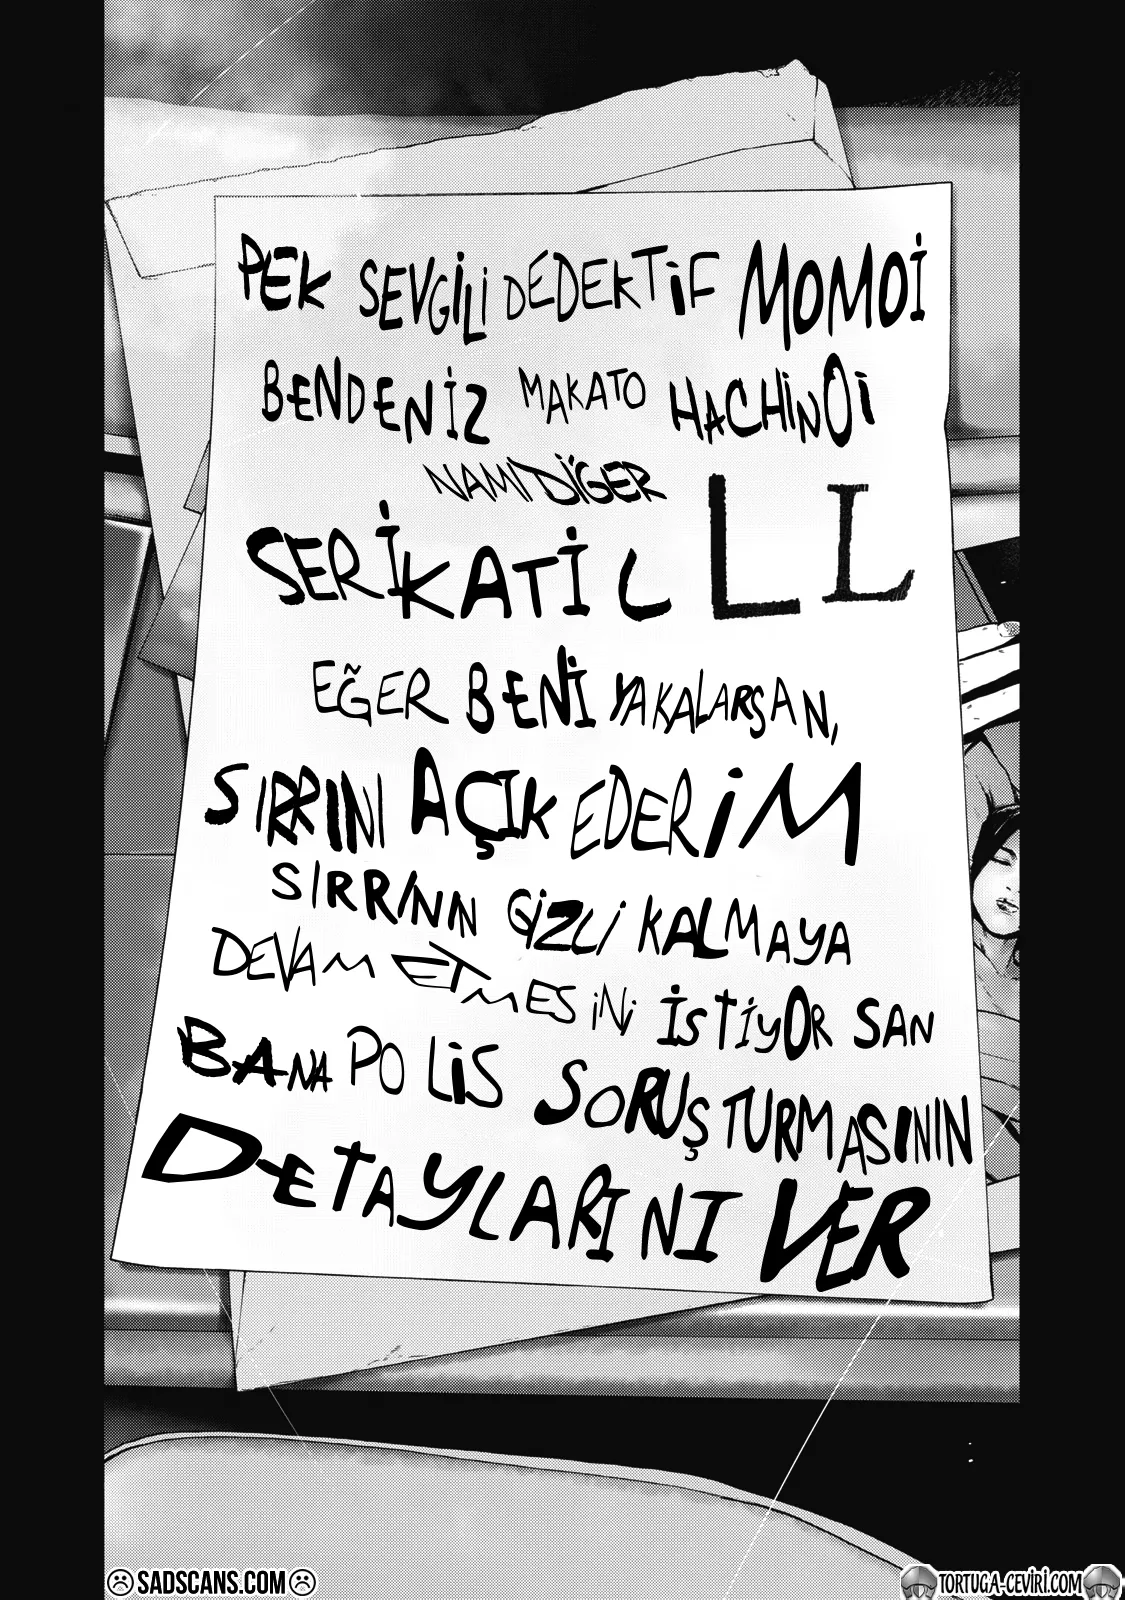 PEK SEVGİLİ DEDEKTİF MOMOİ
BENDENİZ MAKATO HACHİNOİ
NAMI DİĞER
SERİ KATİL LL
EĞER BENİ YAKALARSAN,
SIRRINI AÇIK EDERİM
SIRRININ GİZLİ KALMAYA
DEVAM ETMESİNİ İSTİYOR SAN
BANA POLİS SORUŞTURMASININ
DETAYLARINI VER
SADSCANS.COM
TORTUGA-CEVİRİ.COM